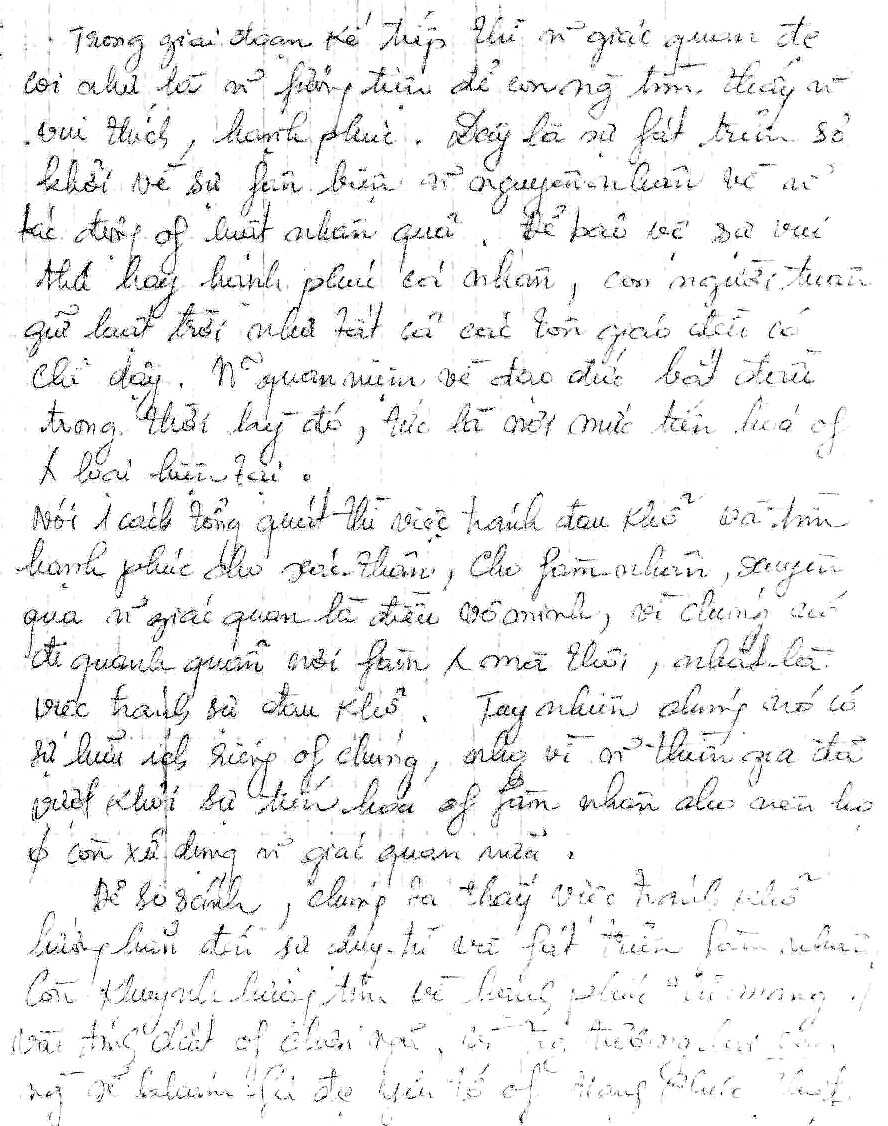 Trong giai đoạn kế tiếp thì n~ giác quan đc
coi như là n~ fương tiện để con ng tìm thấy n~
vui thích, hạnh phúc. Đây là sự fát triển sơ
khởi về sự fân biện n~ nguyên nhân về n~
tác động of luật nhân quả. Để bảo vệ sự vui
thú hay hạnh phúc cá nhân, con người tuân
giữ luật trời như tất cả các tôn giáo đều có
chỉ dậy. N~ quan niệm về đạo đức bắt đầu
trong thời kỳ đó, tức là nơi mức tiến hoá of
loài hiện tại.
Nói 1 cách tổng quát thì việc tránh đau khổ và tìm
hạnh phúc cho xác thân, cho fàm nhân, xuyên
qua n~ giác quan là điều vô minh, vì chúng cứ
đi quanh quẩn nơi fàm mà thôi, nhất là
việc tránh sự đau khổ. Tuy nhiên chúng nó có
sự hữu ích riêng of chúng, nhg vì n~ thiền gia đã
vượt khỏi sự tiến hoá of fàm nhân cho nên họ
ϕ còn xử dụng n~ giác quan nữa.
Để so sánh, chúng ta thấy việc tránh khổ
hướng dẫn đến sự duy trì và fát triển fàm nhân
Còn khuynh hướng tìm về hạnh phúc mang
chất of chân ngã,
of Hạnh Phúc